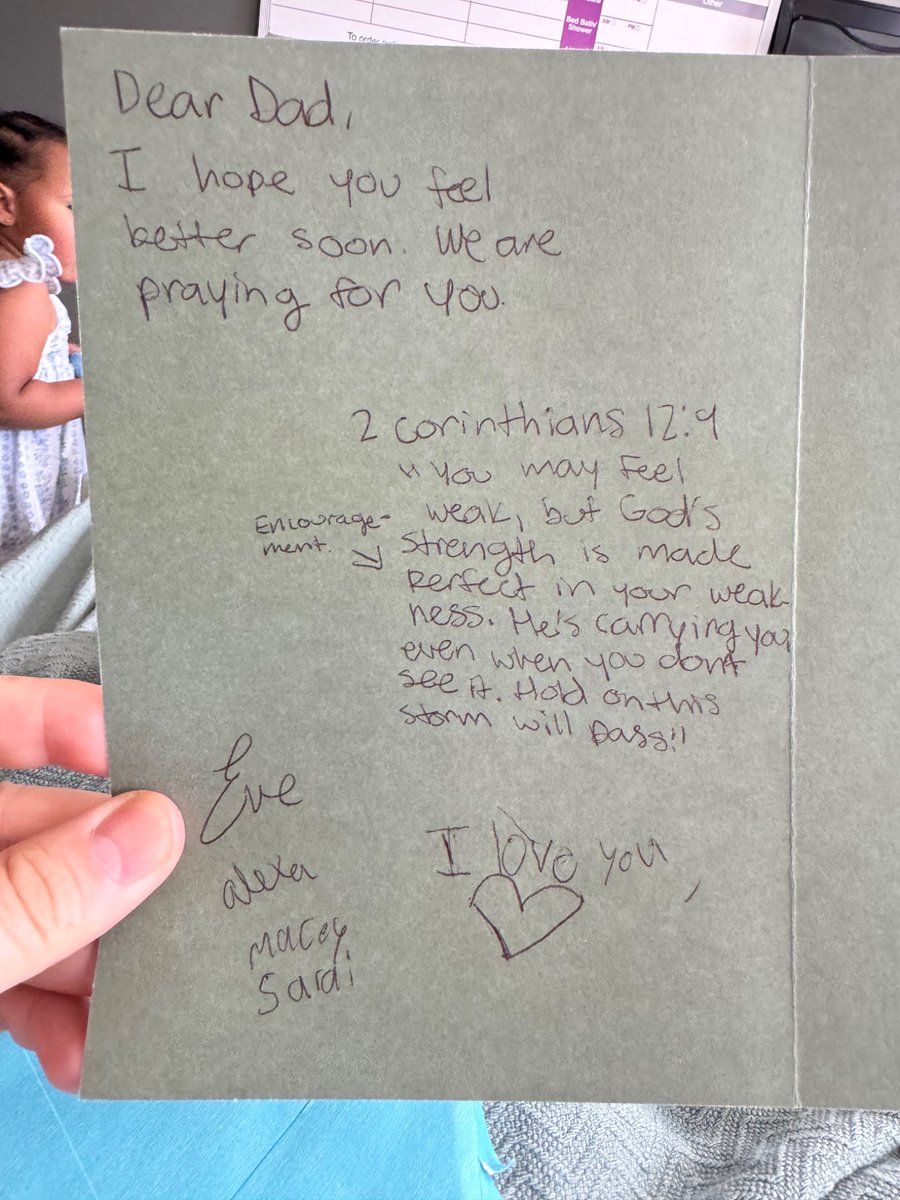 Other
Bed Bath/
Shower
AM
PM
AM
To order
Dear Dad,
I hope you feel
better soon. We are
praying for you.
2 corinthians 12:9
"You may Feel
weak, but God's
Encourage-
ment.
strength is made
Perfect in your weak-
ness. He's carrying you,
even when you don't
see it. Hold on this
storm will pass!!
Eve
alexa
Macey
Sarai
I love you,